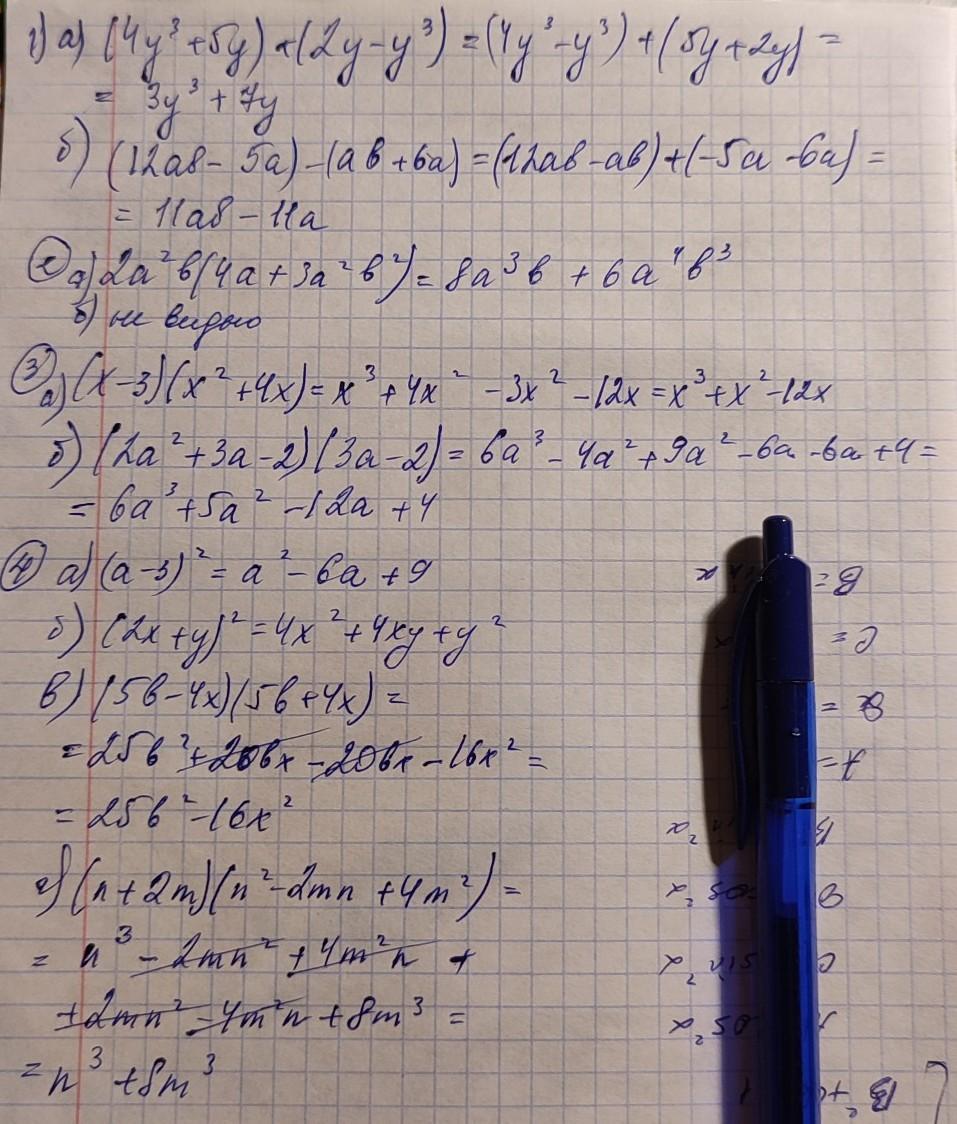 1) а) (4y³+5y)+(2y-y³)=(4y³-y³)+(5y+2y)=
= 3y³+7y
б) (12ab-5a)-(ab+6a)=(12ab-ab)+(-5a-6a)=
= 11ab-11a
2 а) 2a²b(4a+3a²b²)=8a³b+6a⁴b³
б) не видно
3 а) (x-3)(x²+4x)=x³+4x²-3x²-12x=x³+x²-12x
б) (2a²+3a-2)(3a-2)=6a³-4a²+9a²-6a-6a+4=
= 6a³+5a²-12a+4
4 а) (a-3)²=a²-6a+9
б) (2x+y)²=4x²+4xy+y²
в) (5b-4x)(5b+4x)=
=25b²+20bx-20bx-16x²=
= 25b²-16x²
г) (n+2m)(n²-2mn+4m²)=
= n³-2mn²+4m²n+
+2mn²-4m²n+8m³=
= n³+8m³